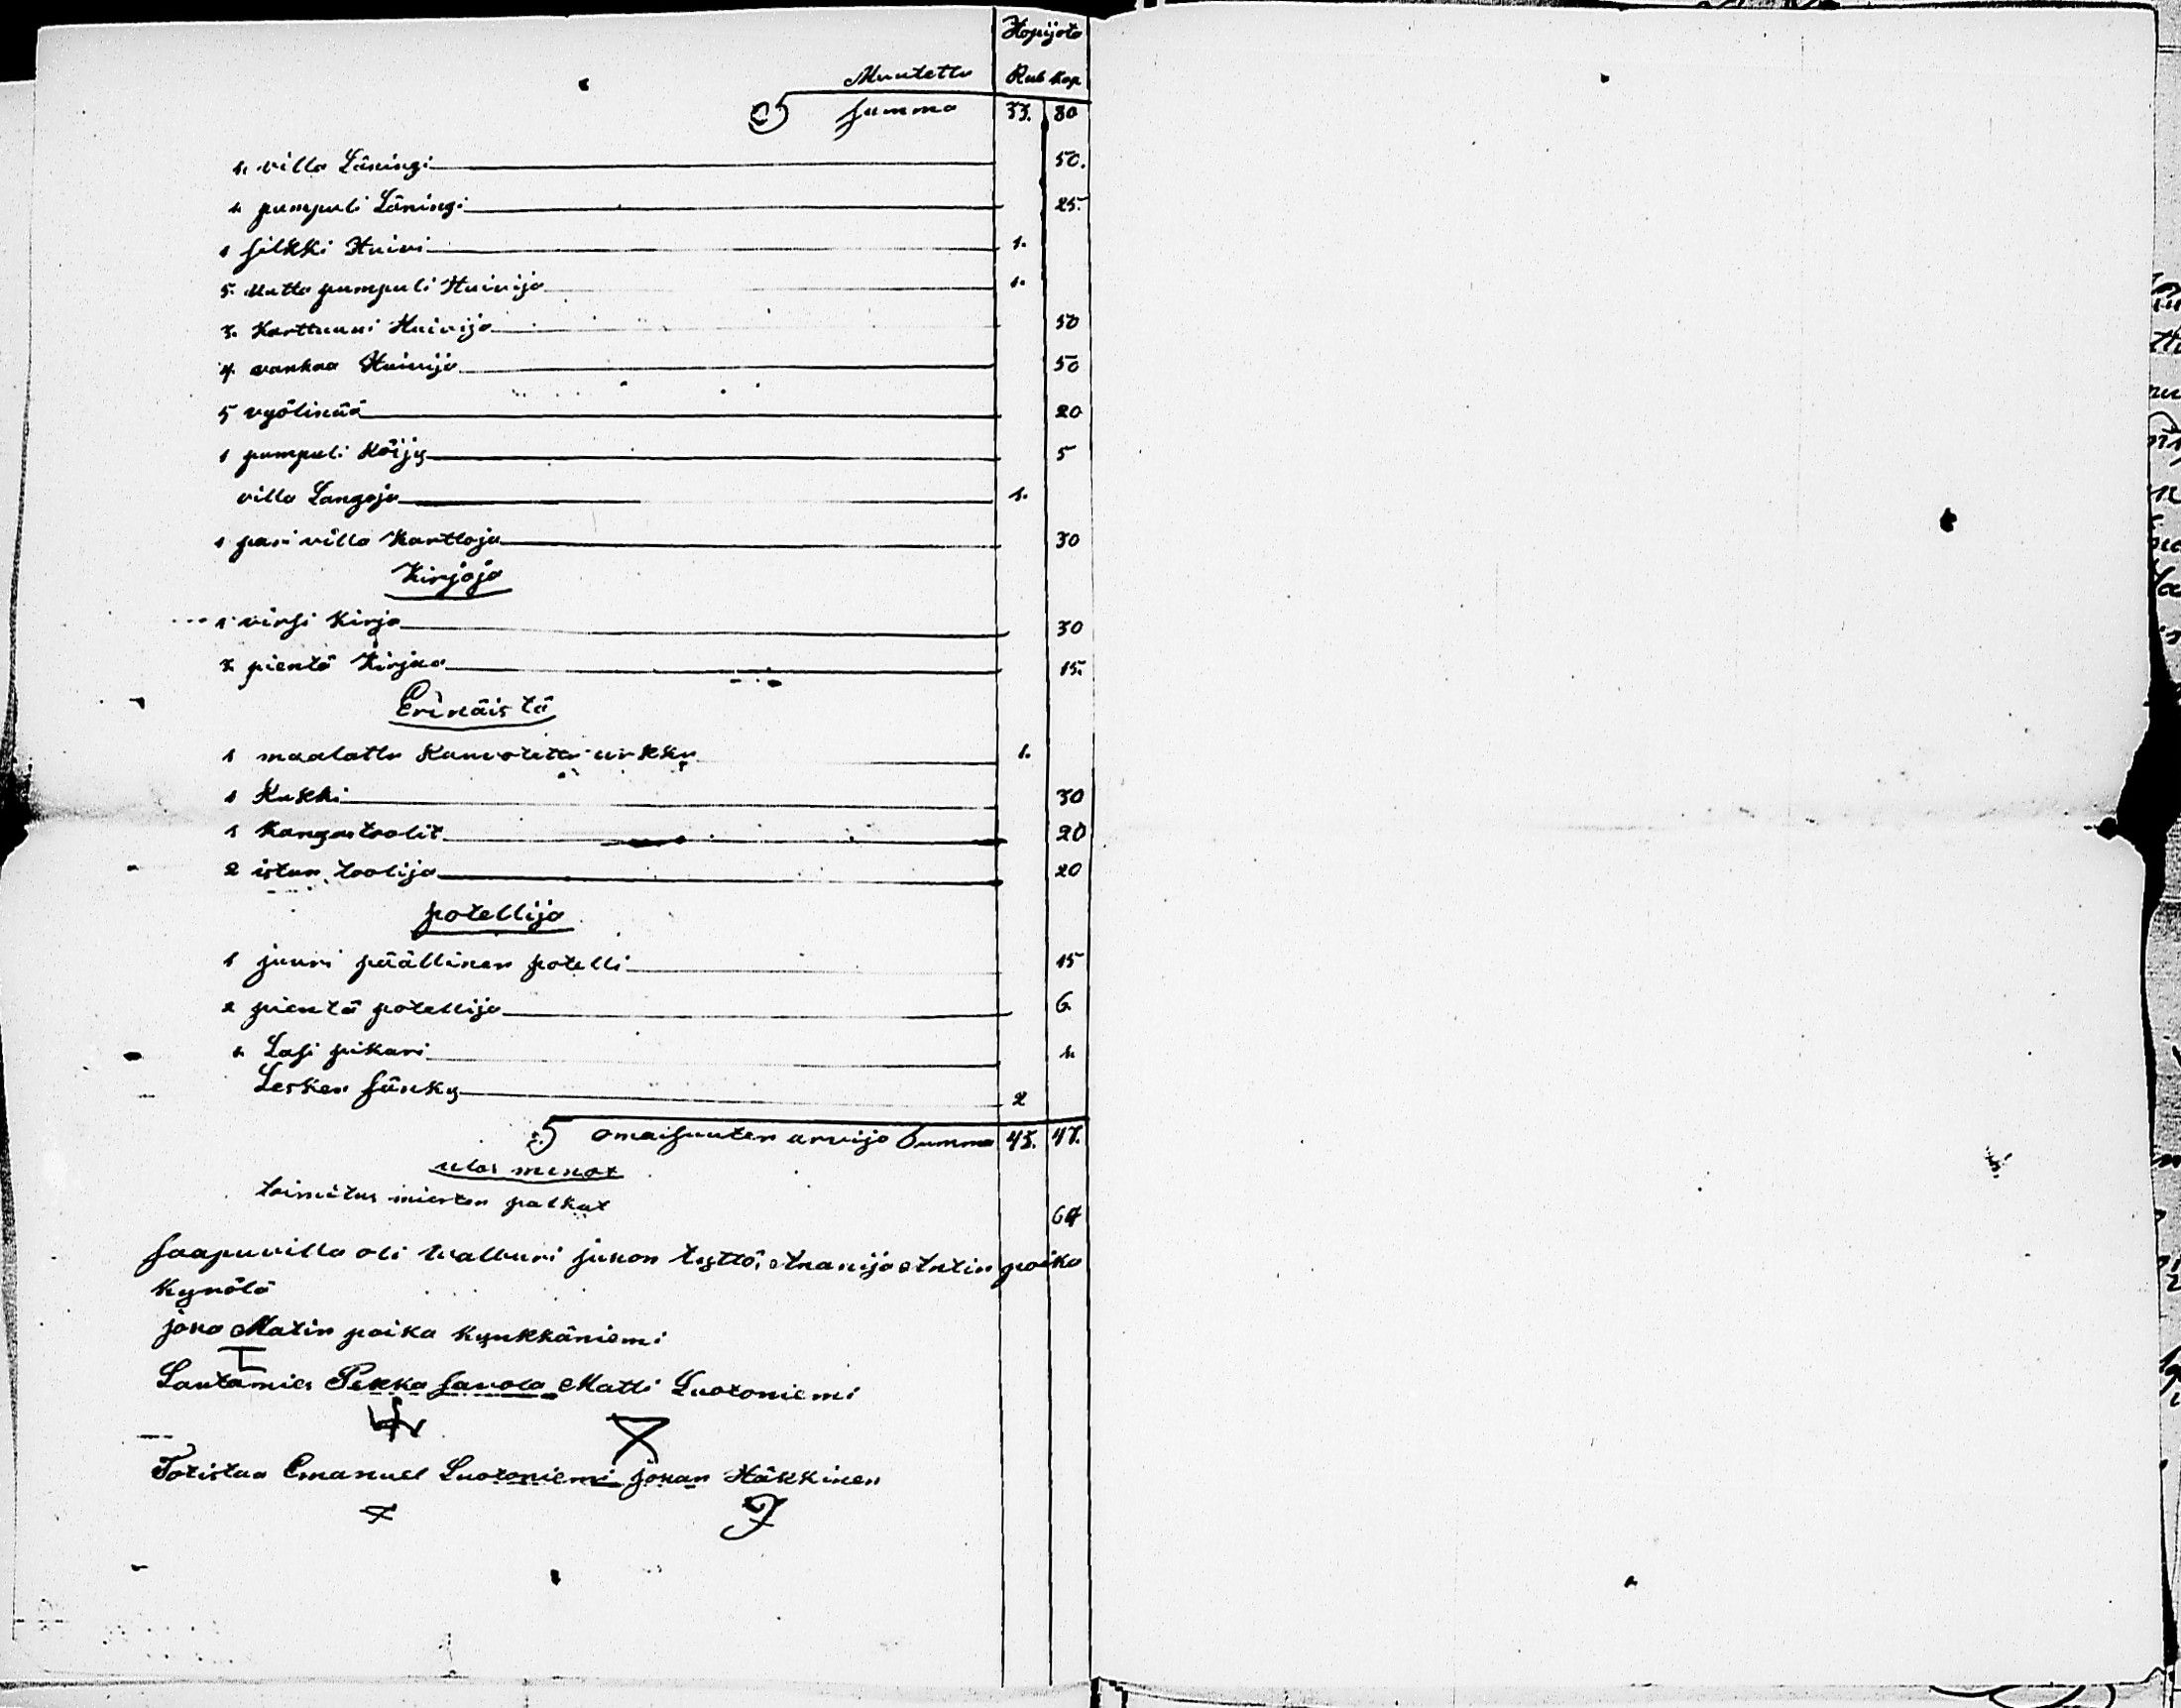 Hopijata
Muutettu Rub Kop
Summa 33. 80
1. villa Läningi 50.
1. pumpuli Läningi 25.
1 silkki Huivi 1.
5. Mutta pumpuli Huivija 1.
3. Karttuuni Huivija 50
4. vanhaa Huivija 50
5 vyölinää 20
1 pumpuli Köijy 5
villa Langoja 1.
1 pari villa Karttoja 30
Kirjoja
1 virsi Kirja 30
3. pientä Kirjaa 15.
Erinäistä
1 maalattu 1.
1 Kukki 30
1 Kangastoolit 20
2 istun toolija 20
potellija
1 juuri päällinen potelli 15
2 pientä potellija 6.
1. Lasi pikari 1.
Lesken Sänky 2
omaisuuten arvijo Summa 43. 47.
ulos menot
toimitus miesten palkat 64
Saapuvilla oli Walburi juhon tyttö, Ananija Antin poika
Kynölä
joha Matin poika Kynkkäniemi
Lautamies Pekka Savola Matti Luotoniemi
Totistaa Emanuel Luotoniemi johan Häkkinen